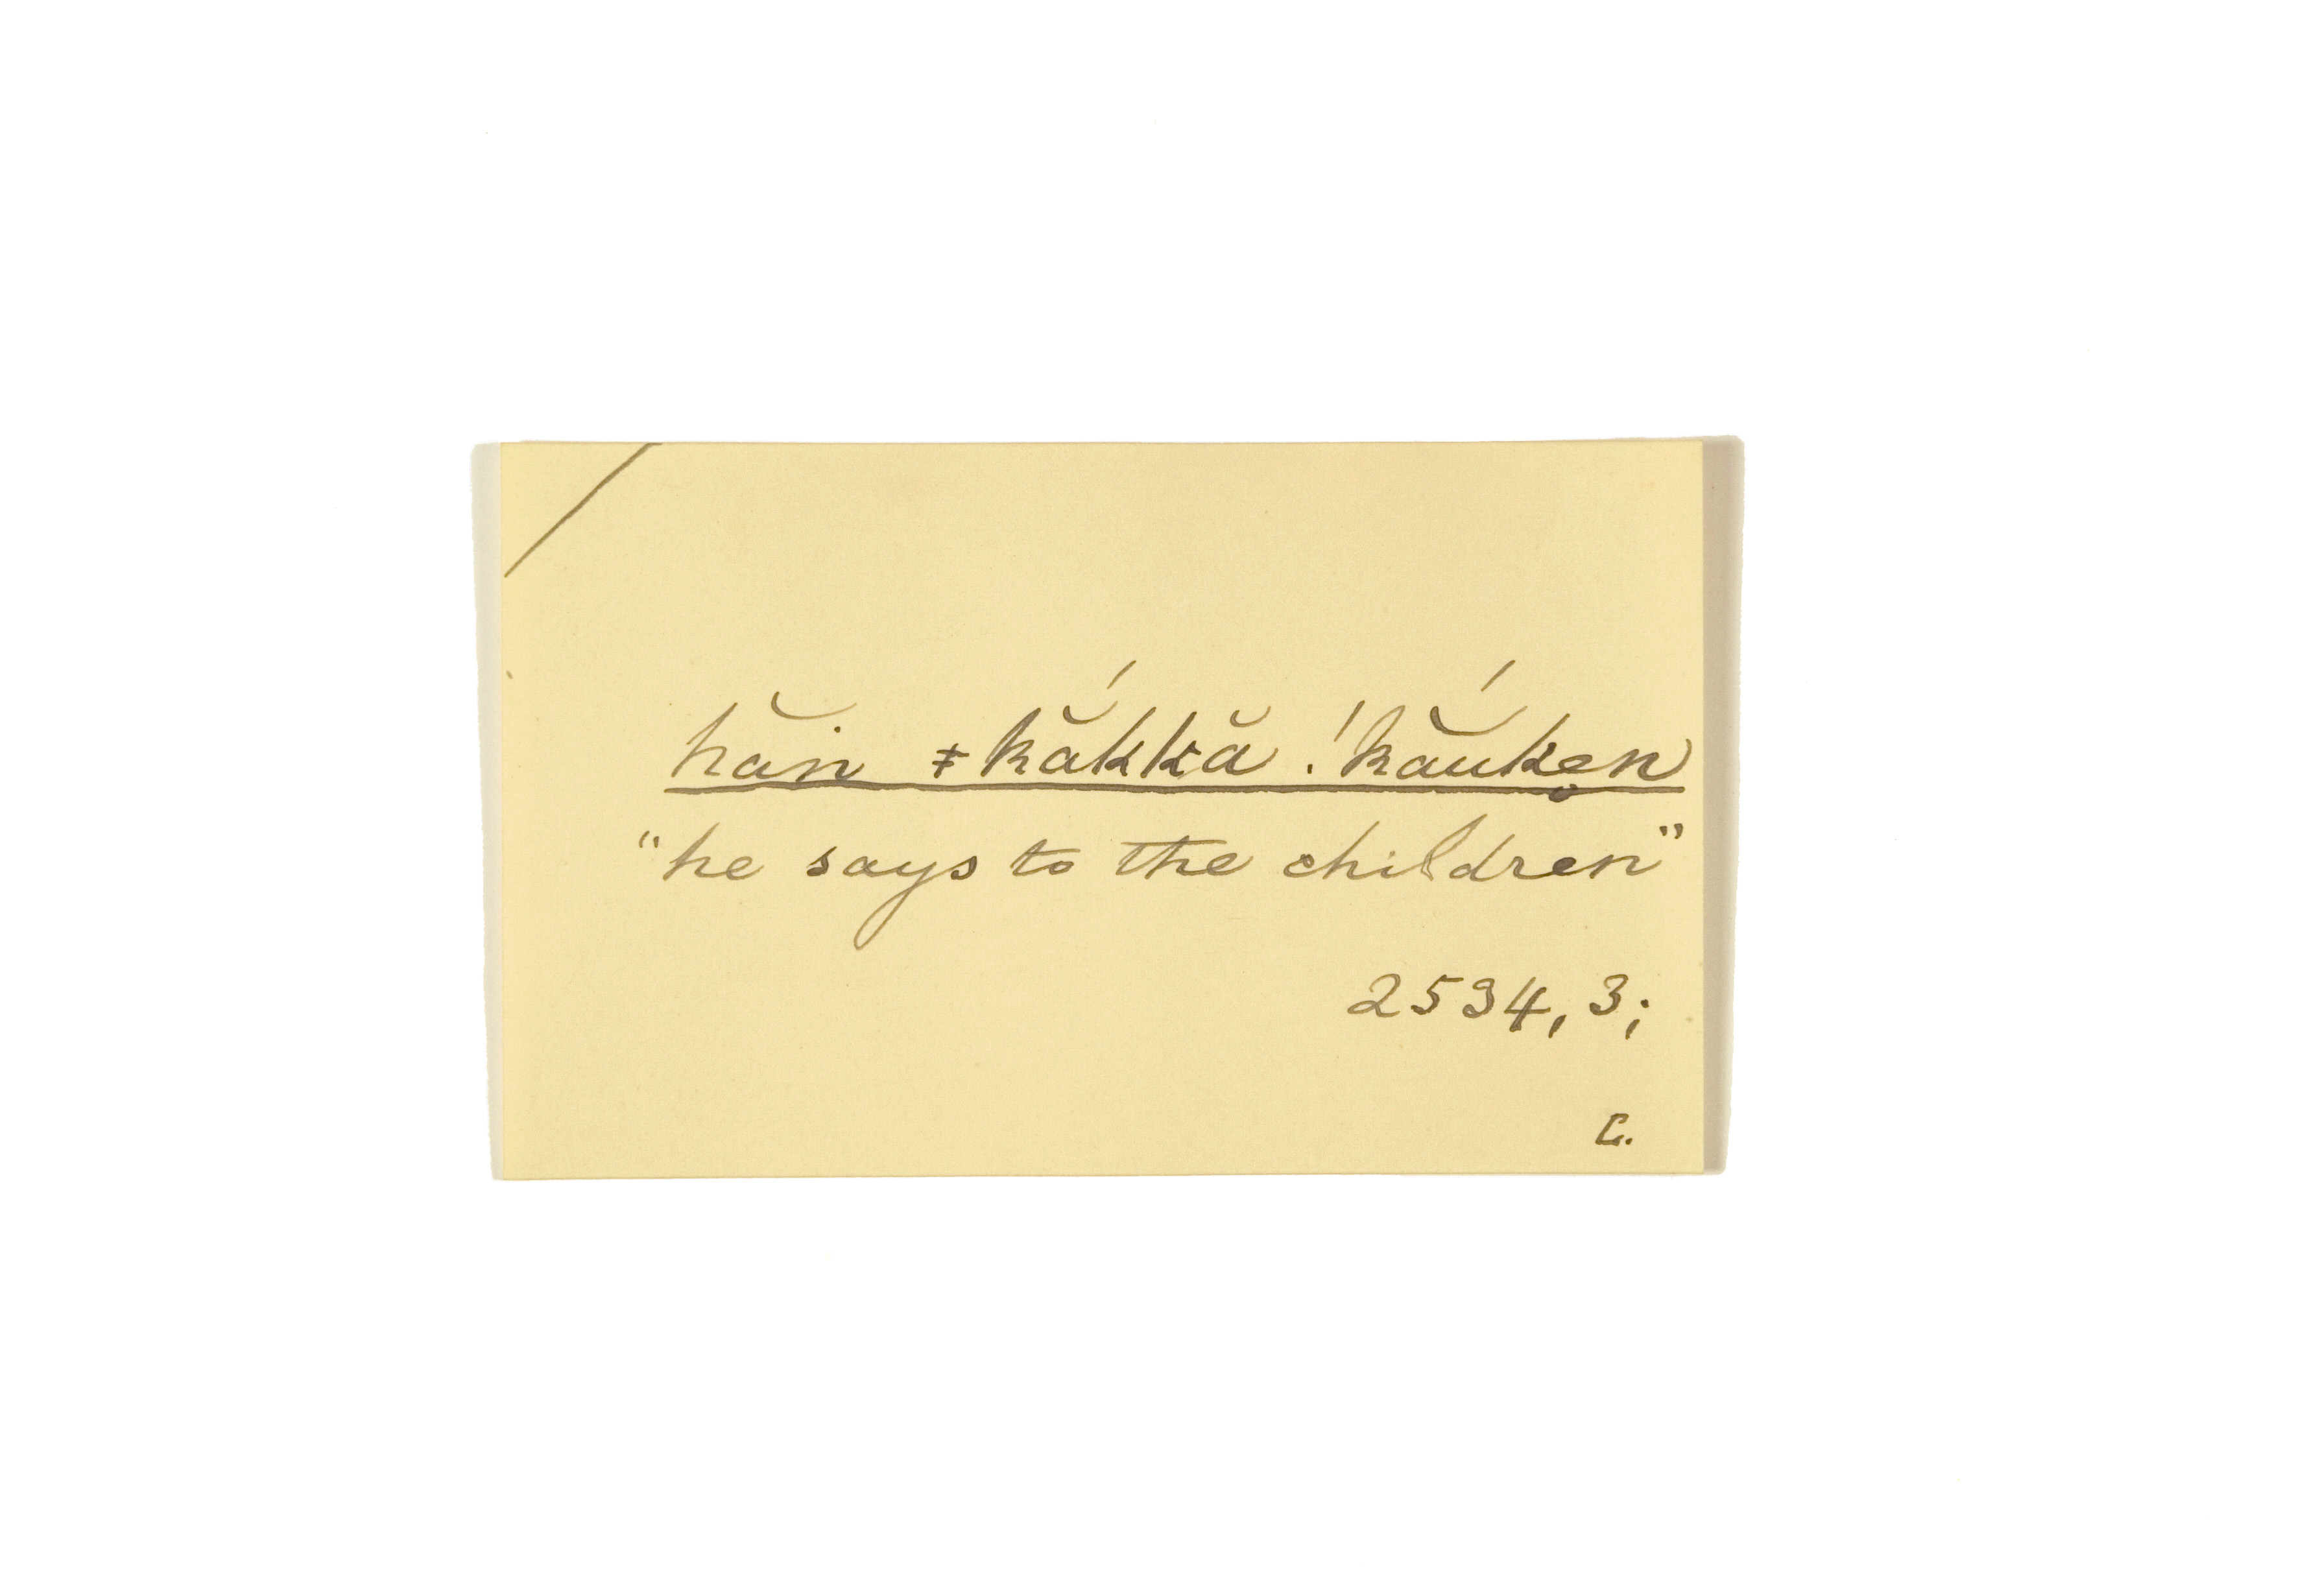 hăṅ ǂkắkkă !kắuken̥
"he says to the children"
2534, 3;
C.